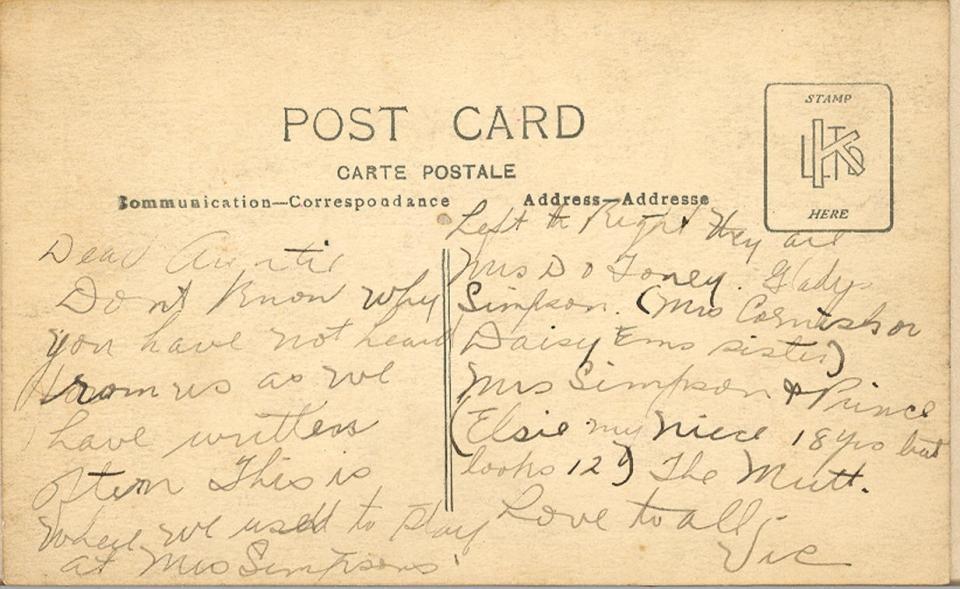 POST CARD
CARTE POSTALE
Communication—Correspondance
Address—Addresse
STAMP
HERE
Dear Auntie
Dont Know why
you have not heard
from us as we
have written
often This is
where we used to play
at Mrs Simpsons'
Left to Right they are
Mrs D O Toney. Gladys
Simpson. (Mrs Cornish or
Daisy Ems sister)
Mrs Simpson & Prince
(Elsie my niece 18 yrs but
looks 12) The Mutt.
Love to all
Vic